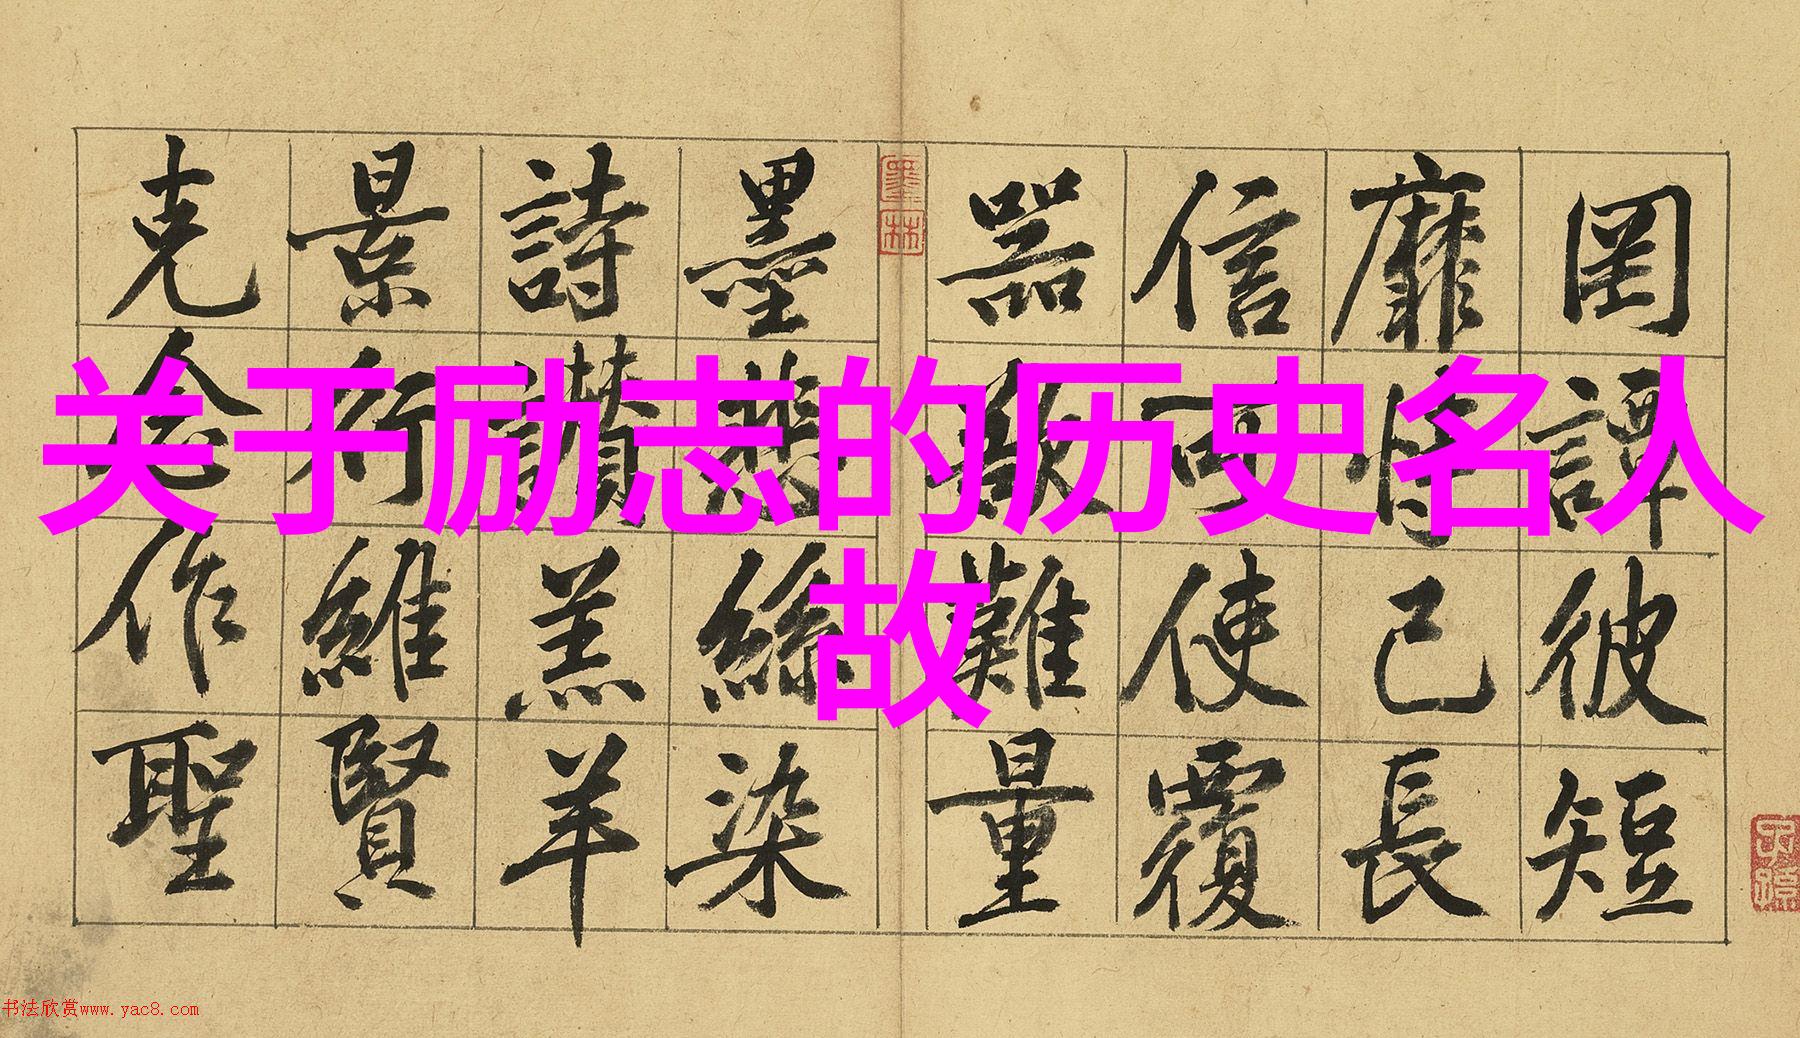 关于励志的历史名人
故
罔譚彼短
靡恃己長
信可使覆
器欲難量
墨悲絲染
詩讃羔羊
景行維賢
克念作聖
墨林
书法欣赏www.yac8.com